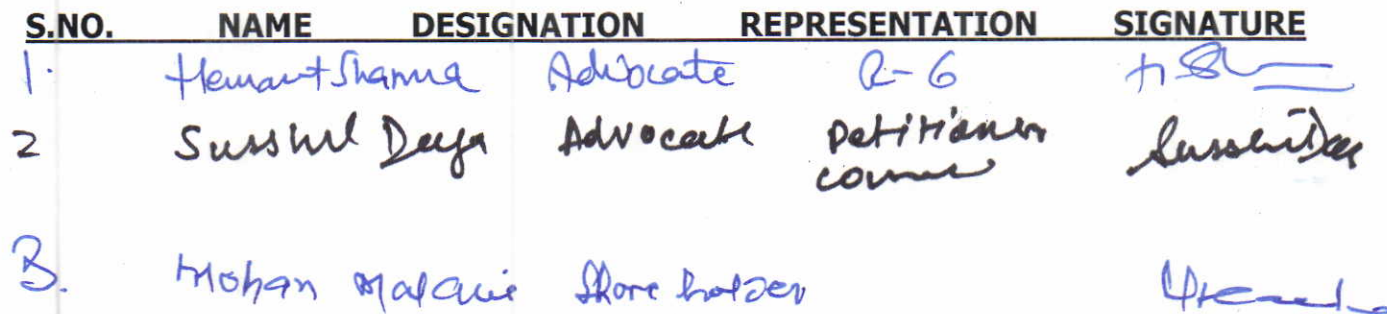 S.NO. NAME DESIGNATION REPRESENTATION SIGNATURE
1. Hemant Sharma Advocate R-6
2 Susshil Advocate Petitioner
3. Mohan Share holder